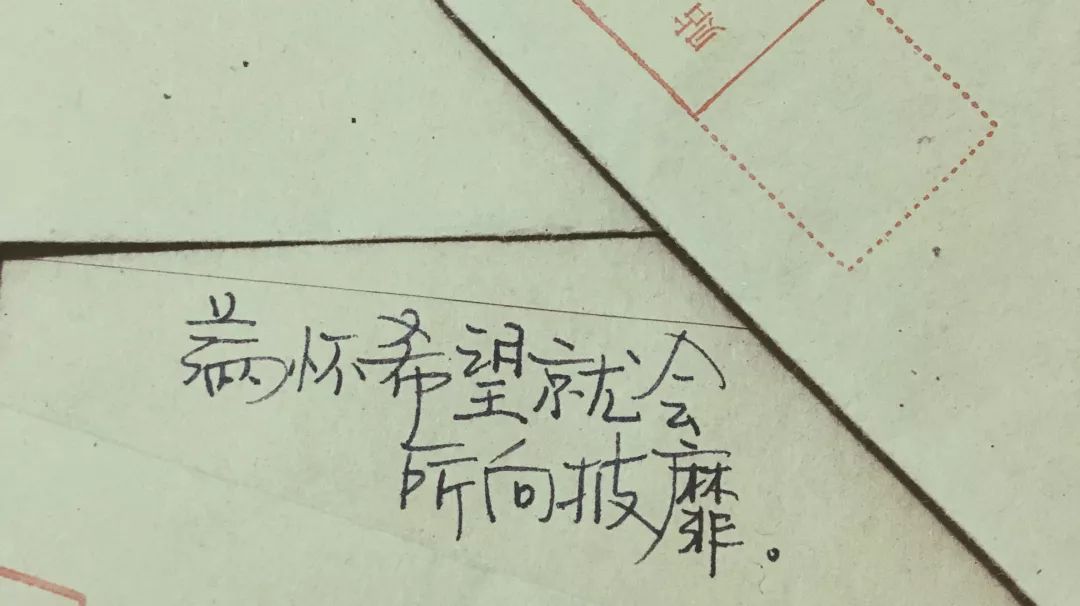 贴
满怀希望就会
所向披靡。